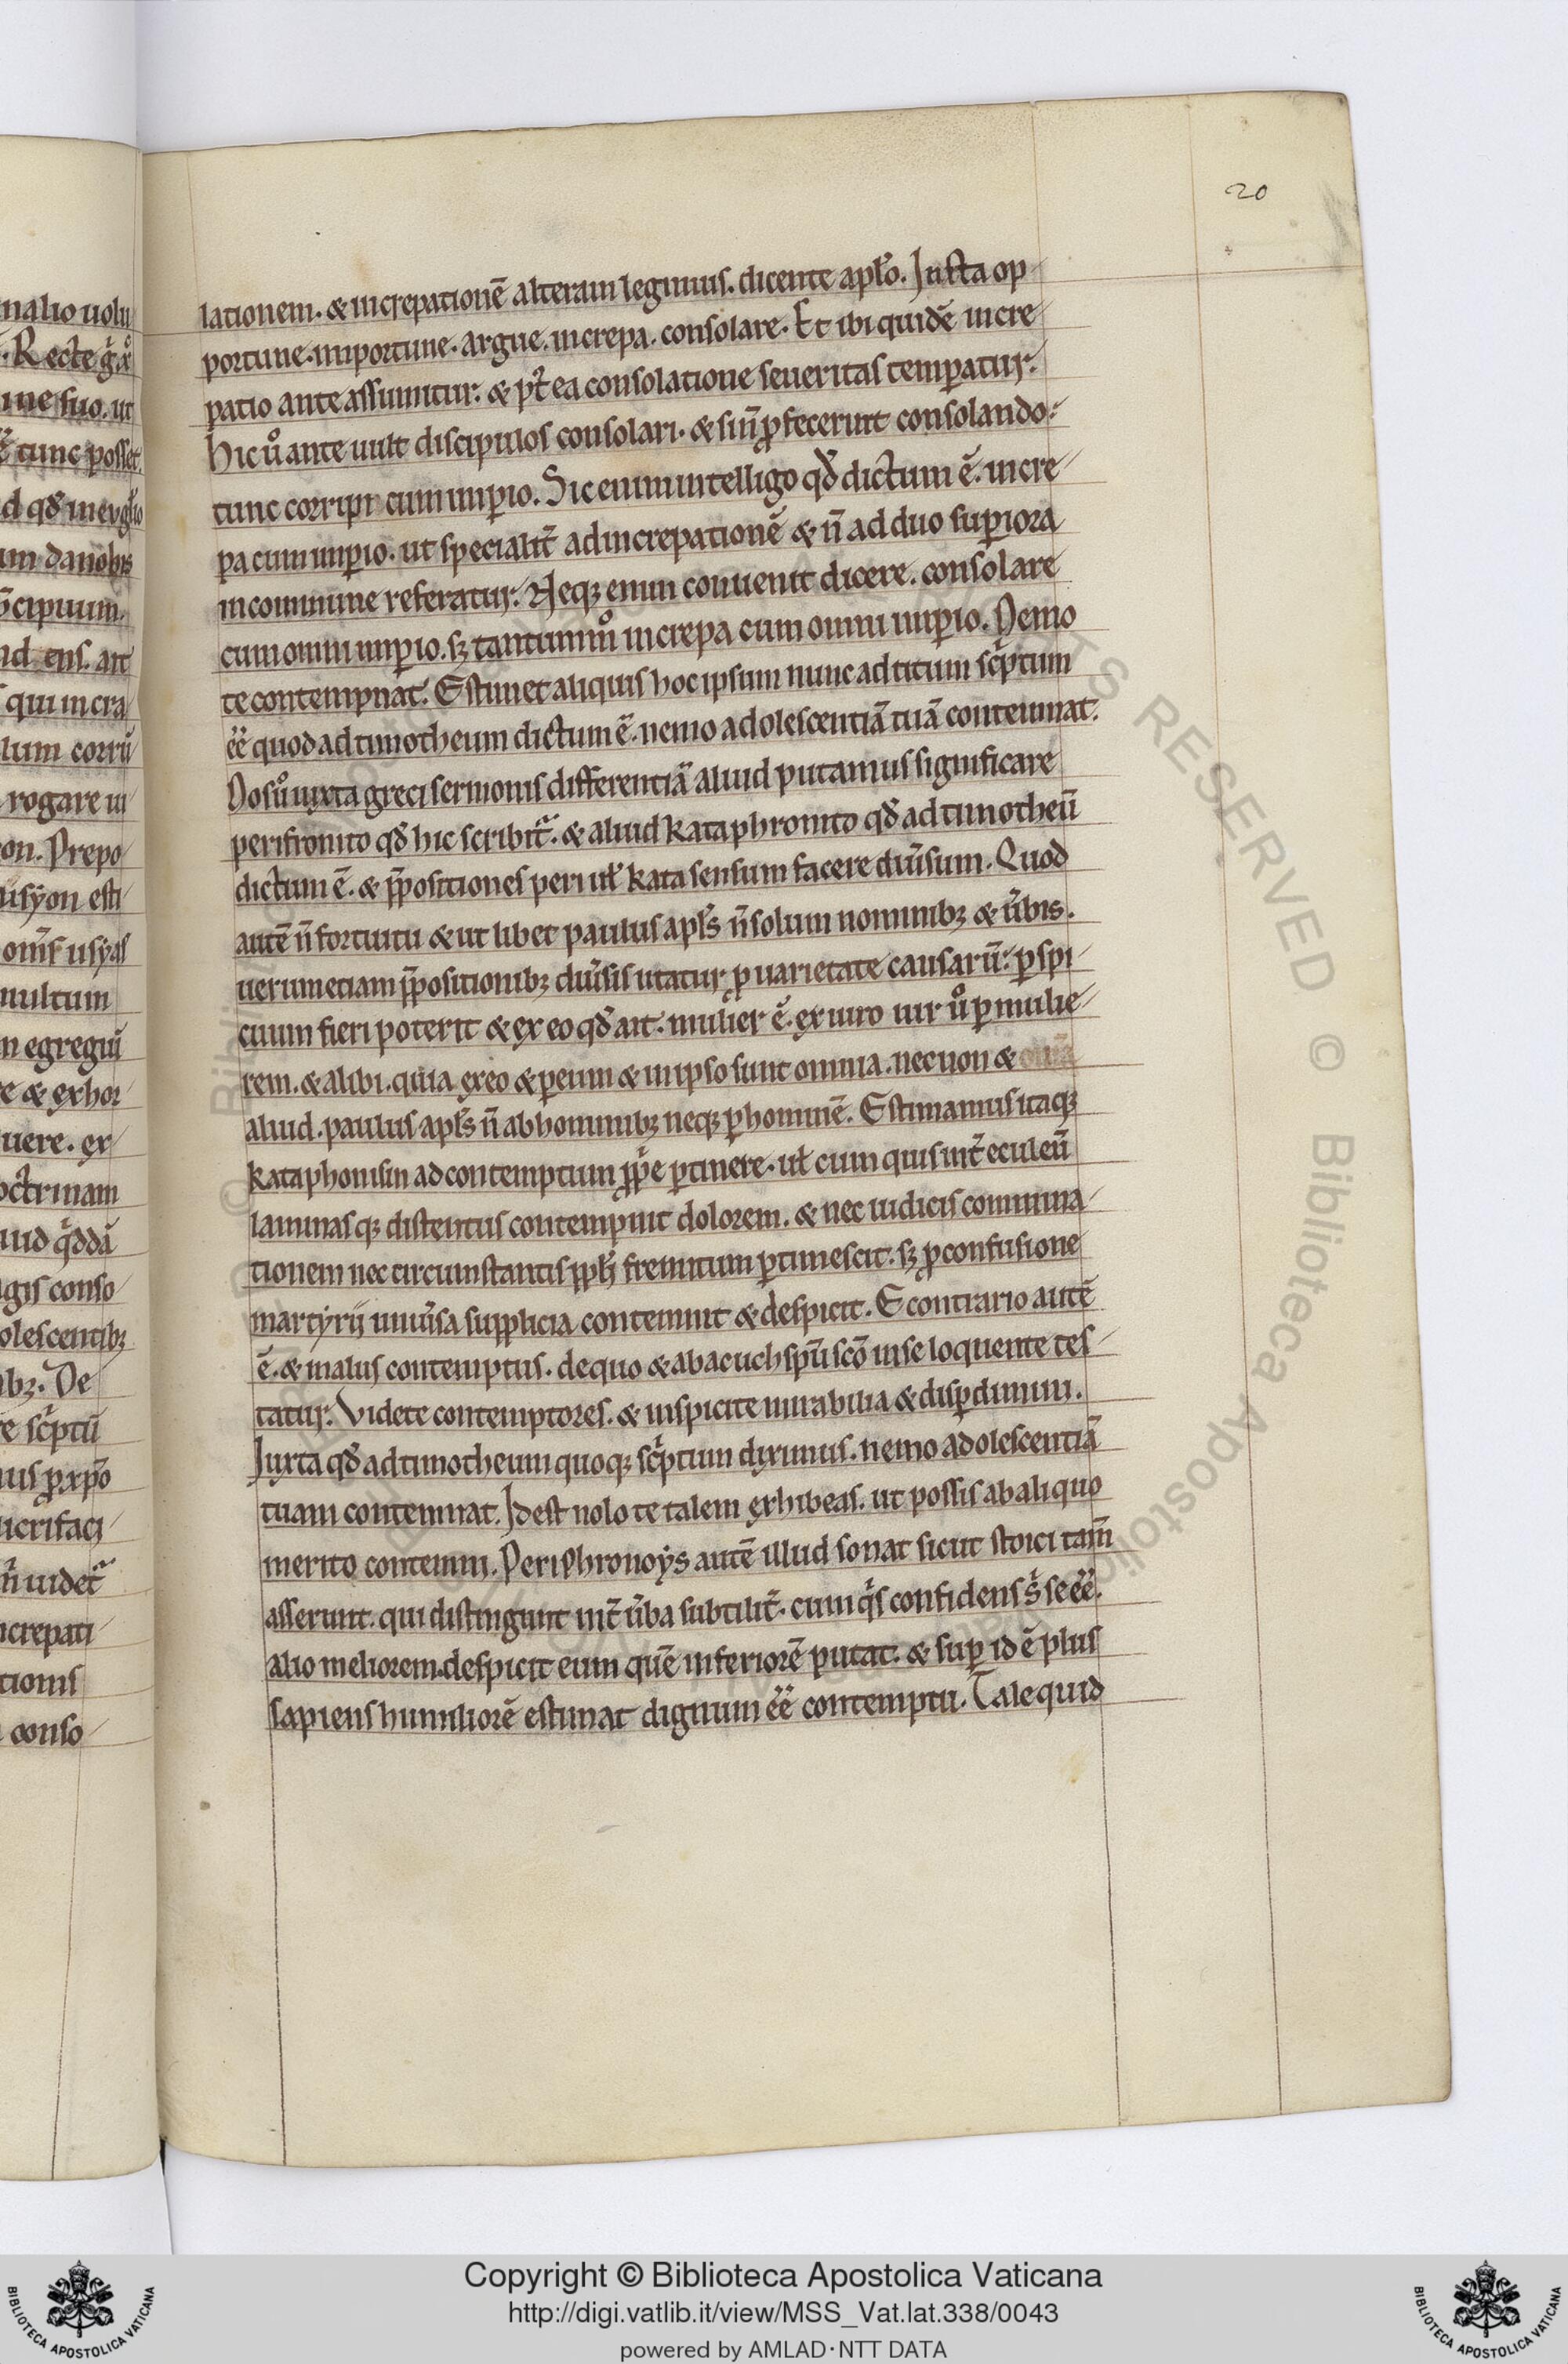 20
lationem. & increpationē alteram legimus. dicente apło. Insta op-
portune. importune. argue. increpa. consolare. Et ibi quidē incre-
patio ante assumitur. & pt̄ ea consolatione seueritas temperatur.
Hic ů ante uult discipulos consolari. & si ñ ꝓfecerint consolando.
tunc corripi cum imꝑio. Sic enim intelligo qđ dictum ē. incre-
pa cum imꝑio. ut specialit̄ ad increpationē & ñ ad duo suꝑiora
in commune referatur. Neqꝫ enim conuenit dicere. consolare
cum omni imꝑio. sꝫ tantummͦ increpa cum omni imꝑio. Nemo
te contempnat. Estimet aliquis hoc ipsum nunc ad titum scͥptum
ēē quod ad timotheum dictum ē. nemo adolescentiā tuā contemnat.
Nos ů iuxta greci sermonis differentiā aliud putamus significare
perifronito qđ hic scribit᷑. & aliud kataphronito qđ ad timotheū
dictum ē. & p̄positiones peri uł kata sensum facere diu̓sum. Quod
autē ñ fortuitu & ut libet paulus apłs ñ solum nominibꝫ & u̓bis.
uerum etiam p̄positionibꝫ diu̓sis utatur ꝓ uarietate causarū. ꝑspi-
cuum fieri poterit & ex eo qđ ait. mulier ē. ex uiro uir ů ꝑ mulie-
rem. & alibi. quia ex eo & ꝑ eum & in ipso sunt omnia. nec non &
aliud. paulus apłs ñ ab hominibꝫ neqꝫ ꝑ hominē. Estimamus itaqꝫ
kataphonisin ad contemptum ꝓpͥe ꝑtinere. uł cum quis int̄ eculeū
laminasqꝫ distentus contempnit dolorem. & nec iudicis commina-
tionem nec circumstantis ppłi fremitum ꝑtimescit. sꝫ ꝓ confusione
martyrij uniu̓sa supplicia contemnit & despicit. E contrario autē
ē. & malus contemptus. de quo & abacuch sp̄u sc̄o in se loquente tes-
tatur. Videte contemptores. & inspicite mirabilia & disꝑdimini.
Iuxta qđ ad timotheum quoqꝫ scͥptum diximus. nemo adolescentiā
tuam contemnat. Idest nolo te talem exhibeas. ut possis ab aliquo
merito contemni. Periphronoys autē illud sonat sicut stoici tam̄
asserunt. qui distingunt int̄ u̓ba subtilit̄. cum qͥs confidens sͥ se ēē.
alio meliorem. despicit eum quē inferiorē putat. & suꝑ id ē plus
sapiens humiliorē estimat dignum ēē contemptu. Tale quid
Copyright © Biblioteca Apostolica Vaticana
http://digi.vatlib.it/view/MSS_Vat.lat.338/0043
powered by AMLAD·NTT DATA